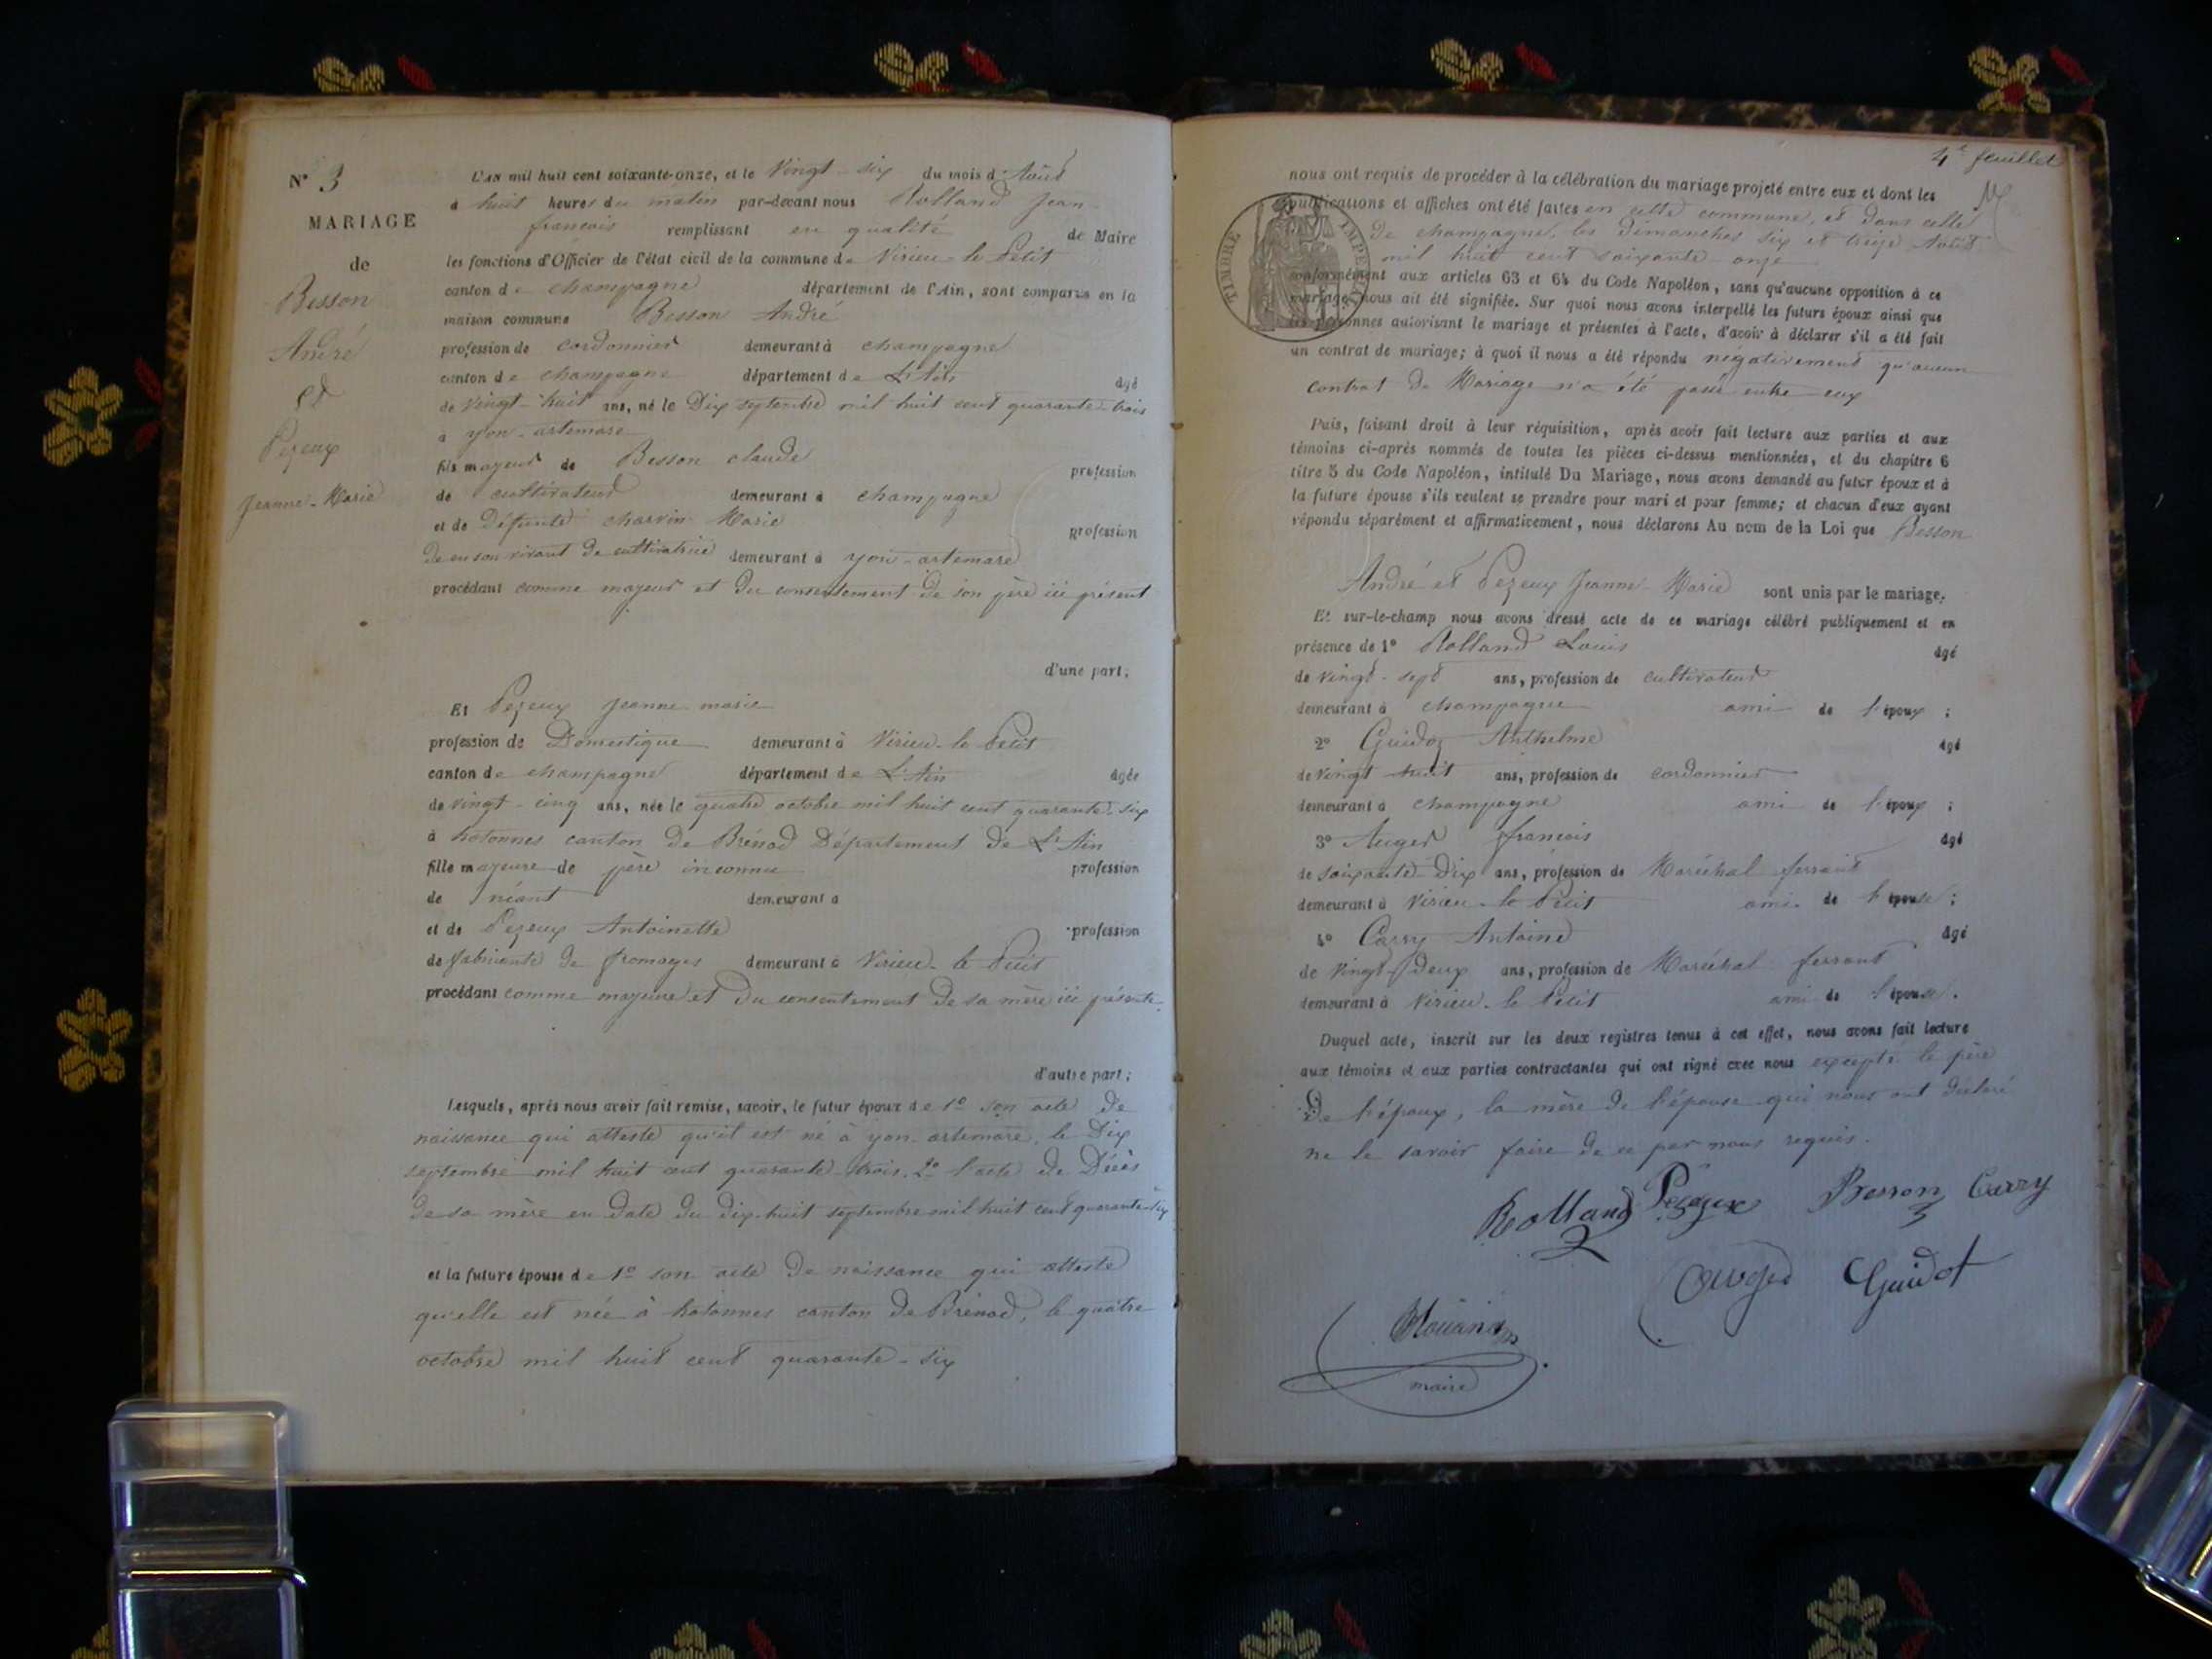 N° 3
MARIAGE
de
Besson
André
et
Pezeux
Jeanne-Marie
L'AN mil huit cent soixante-onze, et le Vingt-six du mois d'Août
à huit heures du matin par-devant nous Rolland Jean
françois remplissant en qualité de Maire
les fonctions d'Officier de l'état civil de la commune de Virieu-le Petit
canton de champagne département de l'Ain, sont comparus en la
maison commune Besson André
profession de cordonnier demeurant à champagne
canton de champagne département de L'Ain âgé
de vingt-huit ans, né le Dix septembre mil huit cent quarante-trois
à yon-artemare
fils majeur de Besson claude profession
de cultivateur demeurant à champagne
et de Défunte charvin Marie profession
de en son vivant de cultivatrice demeurant à yon-artemare
procédant comme majeur et du consentement de son père ici présent
d'une part;
Et Pezeux Jeanne marie
profession de Domestique demeurant à Virieu-le Petit
canton de champagne département de L'Ain âgée
de vingt-cinq ans, née le quatre octobre mil huit cent quarante-six
à hotonnes canton de Brénod Département de L'Ain
fille majeure de père inconnu profession
de néant demeurant à
et de Pezeux Antoinette profession
de fabricante de fromages demeurant à Virieu-le Petit
procédant comme majeure et du consentement de sa mère ici présente
d'autre part;
Lesquels, après nous avoir fait remise, savoir, le futur époux de 1° son acte de
naissance qui atteste qu'il est né à yon-artemare, le Dix
septembre mil huit cent quarante-trois. 2° l'acte de Décès
de sa mère en date du dix-huit septembre mil huit cent quarante-six
et la future épouse de 1° son acte de naissance qui atteste
qu'elle est née à hotonnes canton de Brénod, le quatre
octobre mil huit cent quarante-six
4e feuillet
nous ont requis de procéder à la célébration du mariage projeté entre eux et dont les
publications et affiches ont été faites en cette commune, et dans celle
de champagne, les dimanches six et treize Août
mil huit cent soixante-onze
TIMBRE IMPERIAL
conformément aux articles 63 et 64 du Code Napoléon, sans qu'aucune opposition à ce
mariage nous ait été signifiée. Sur quoi nous avons interpellé les futurs époux ainsi que
les personnes autorisant le mariage et présentes à l'acte, d'avoir à déclarer s'il a été fait
un contrat de mariage; à quoi il nous a été répondu négativement qu'aucun
contrat de Mariage n'a été passé entre eux
Puis, faisant droit à leur réquisition, après avoir fait lecture aux parties et aux
témoins ci-après nommés de toutes les pièces ci-dessus mentionnées, et du chapitre 6
titre 5 du Code Napoléon, intitulé Du Mariage, nous avons demandé au futur époux et à
la future épouse s'ils veulent se prendre pour mari et pour femme; et chacun d'eux ayant
répondu séparément et affirmativement, nous déclarons Au nom de la Loi que Besson
André et Pezeux Jeanne-Marie sont unis par le mariage.
Et sur-le-champ nous avons dressé acte de ce mariage célébré publiquement et en
présence de 1° Rolland Louis âgé
de vingt-sept ans, profession de cultivateur
demeurant à champagne ami de l'époux;
2° Guidoz Anthelme âgé
de vingt huit ans, profession de cordonnier
demeurant à champagne ami de l'époux;
3° Auger françois âgé
de soixante-Dix ans, profession de Maréchal ferrant
demeurant à Virieu-le Petit ami de l'épouse;
4° Carry Antoine âgé
de vingt-deux ans, profession de Maréchal ferrant
demeurant à Virieu-le Petit ami de l'épouse.
Duquel acte, inscrit sur les deux registres tenus à cet effet, nous avons fait lecture
aux témoins et aux parties contractantes qui ont signé avec nous excepté le père
De l'époux, la mère de l'épouse qui nous ont déclaré
ne le savoir faire de ce par nous requis.
Rolland Pezeux Besson Carry
Auger Guidot
maire